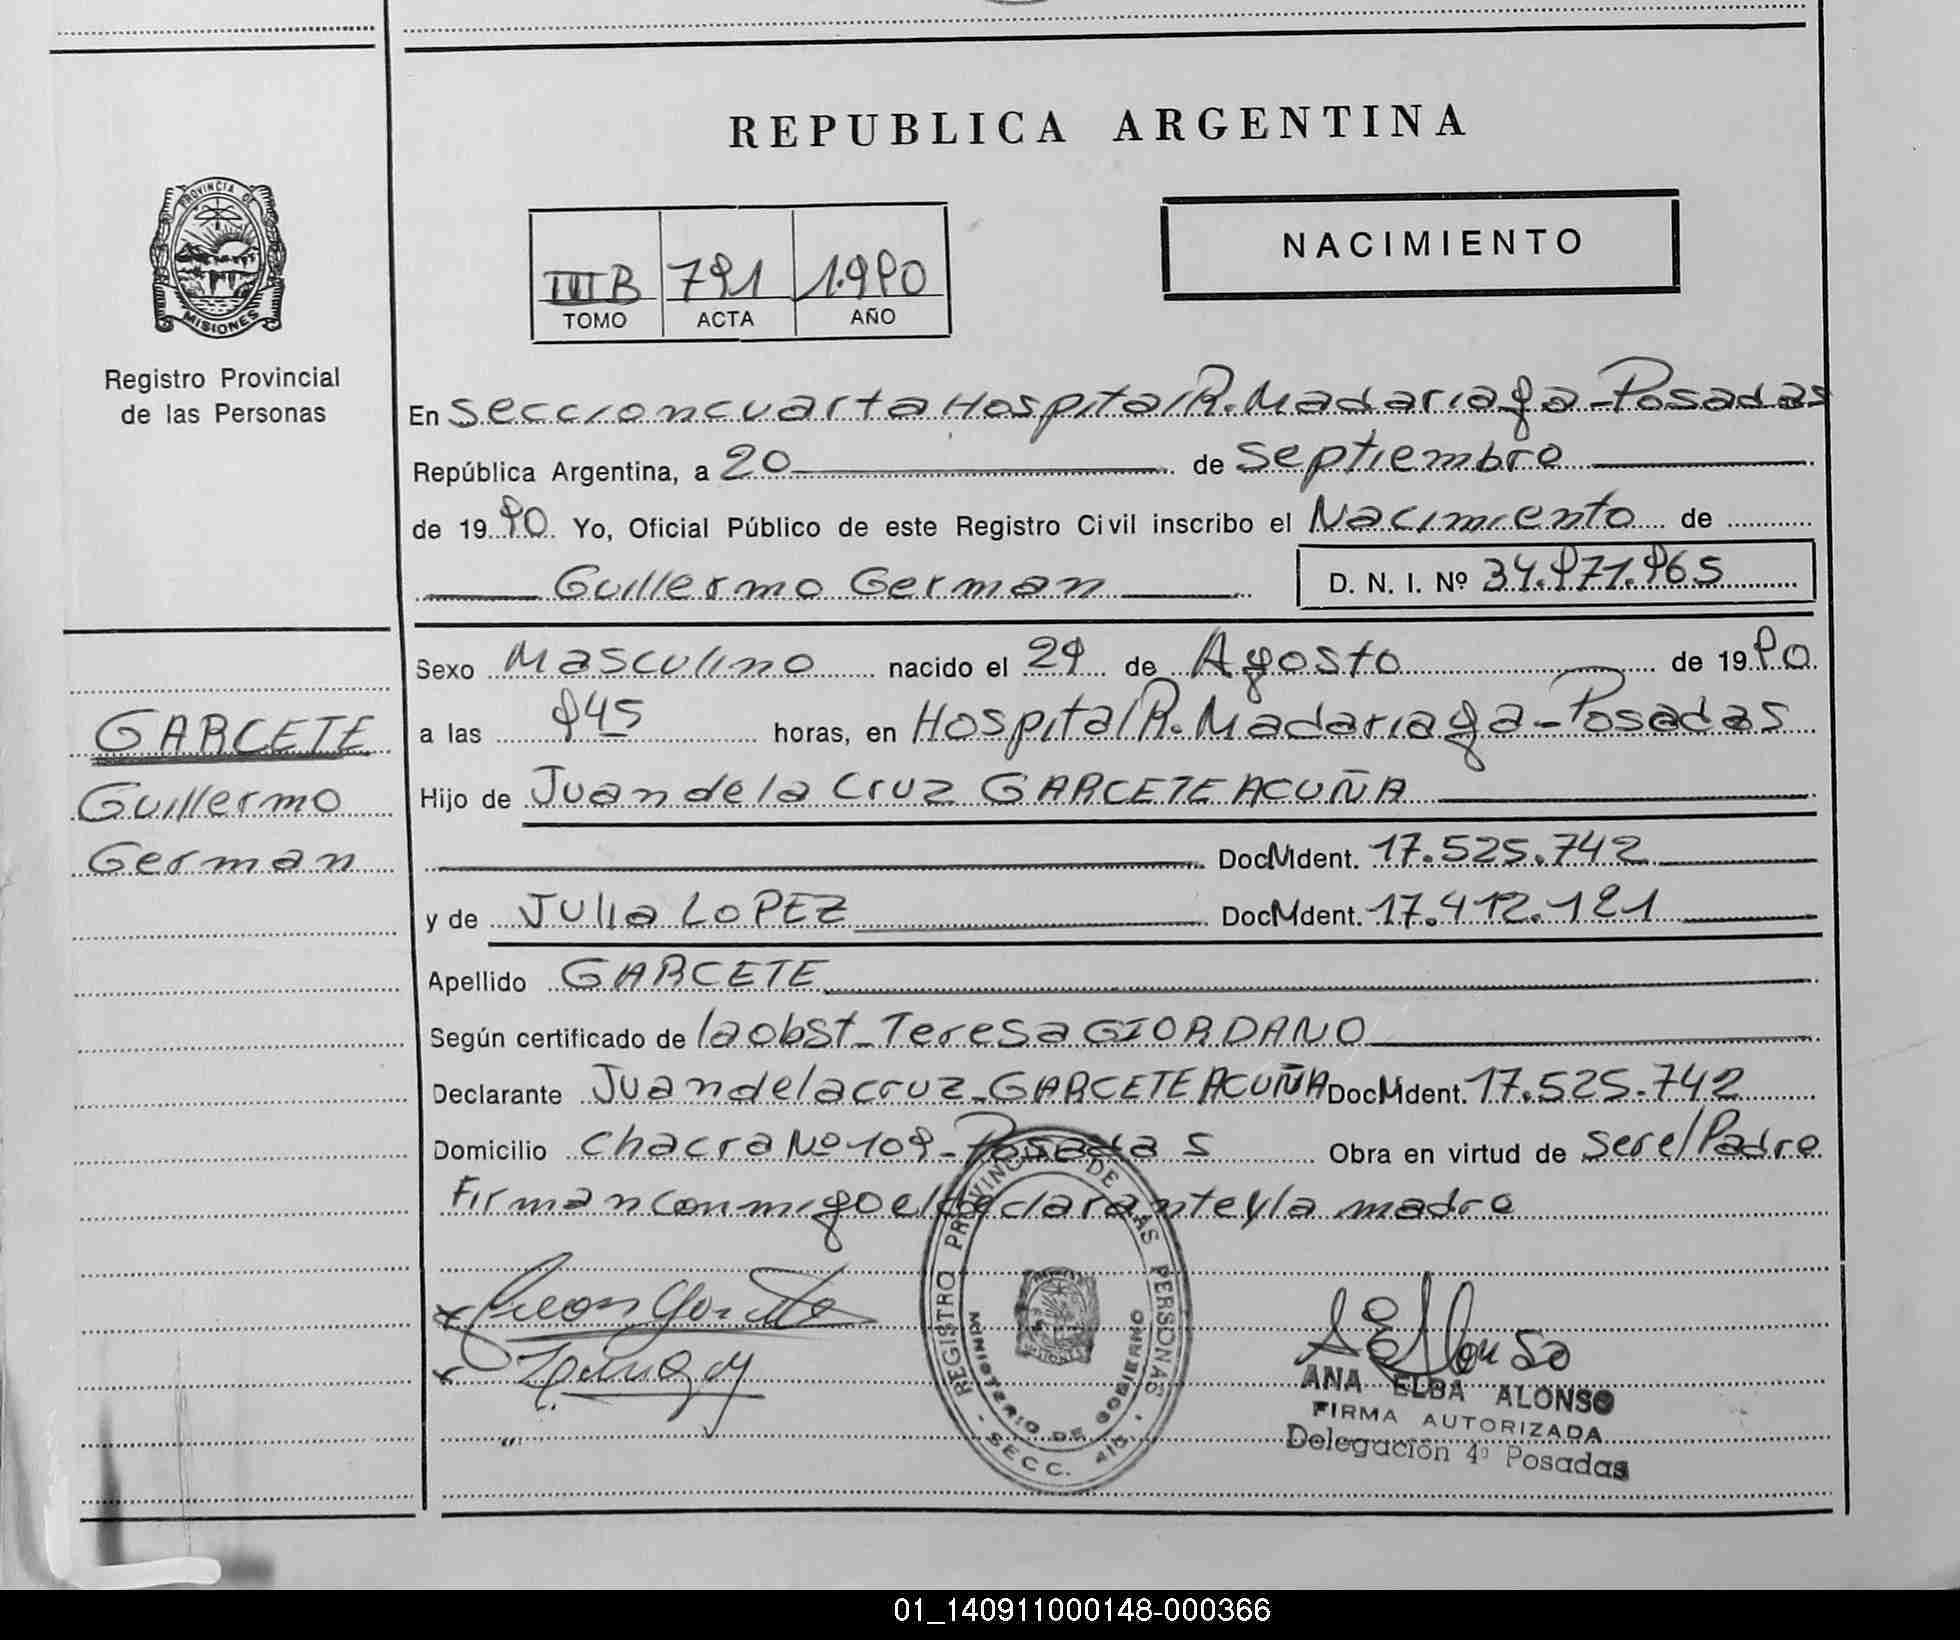 REPUBLICA ARGENTINA
PROVINCIA DE
MISIONES
Registro Provincial
de las Personas
NACIMIENTO
III B 791 1.990
TOMO ACTA AÑO
En Seccion cuarta Hospital R. Madariaga - Posadas
República Argentina, a 20 de Septiembre
de 19 90 Yo, Oficial Público de este Registro Civil inscribo el Nacimiento de
Guillermo German D. N. I. Nº 34.971.965
Sexo Masculino nacido el 29 de Agosto de 19 90
a las 945 horas, en Hospital R. Madariaga - Posadas
Hijo de Juan de la Cruz GARCETE ACUÑA
Doc M Ident. 17.525.742
y de Julia LOPEZ Doc M Ident. 17.412.121
Apellido GARCETE
Según certificado de la obst_ Teresa GIORDANO
Declarante Juan de la cruz_ GARCETE ACUÑA Doc M Ident. 17.525.742
Domicilio chacra Nº 109 - Posadas Obra en virtud de ser el Padre
Firman conmigo el declarante y la madre
GARCETE
Guillermo
German
REGISTRO PROVINCIAL DE LAS PERSONAS
MINISTERIO DE GOBIERNO
- SECC. 4ta. -
ANA ELBA ALONSO
FIRMA AUTORIZADA
Delegación 4º Posadas
01_140911000148-000366